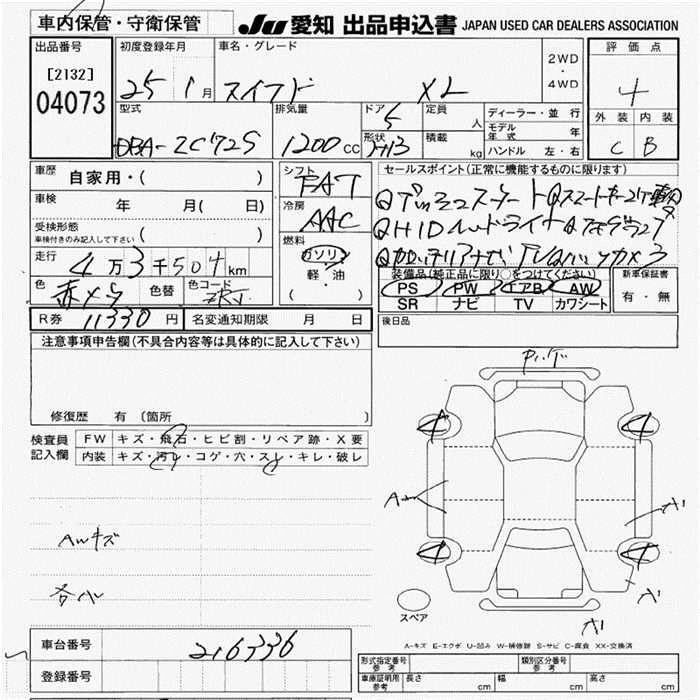 車内保管・守衛保管
JU 愛知 出品申込書 JAPAN USED CAR DEALERS ASSOCIATION
出品番号
[2132]
04073
初度登録年月
25 1月
車名・グレード
スイフト XL
2WD
・
4WD
評価点
4
外装 内装
C B
型式
DBA-ZC72S
排気量
1200cc
ドア
5
形状
定員
人
積載
kg
ディーラー・並行
モデル年式 年
ハンドル 左・右
車歴
自家用・( )
車検
年 月( 日)
受検形態
車検付きのみ記入して下さい ( )
走行
4万3千504km
色
赤メタ
色替
色コード
シフト
FAT
冷房
AAC
燃料
ガソリン
軽・油
( )
セールスポイント(正常に機能するものに限ります)
装備品(純正品に限り○をつけてください)
PS PW エアB AW
SR ナビ TV カワシート
新車保証書
有・無
R券 11330円
名変通知期限 月 日
後日品
注意事項申告欄(不具合内容等は具体的に記入して下さい)
修復歴 有 (箇所 )
検査員
記入欄
FW キズ・飛石・ヒビ割・リペア跡・X要
内装 キズ・汚れ・コゲ・穴・スレ・キレ・破レ
AWキズ
各小
4 4
A A1
4 4
A1
A1
スペア
A-キズ E-エクボ U-凹み W-補修跡 S-サビ C-腐食 XX-交換済
車台番号
216336
登録番号
形式指定番号 参考
類別区分番号 参考
車庫証明用 参考
長さ cm
幅 cm
高さ cm